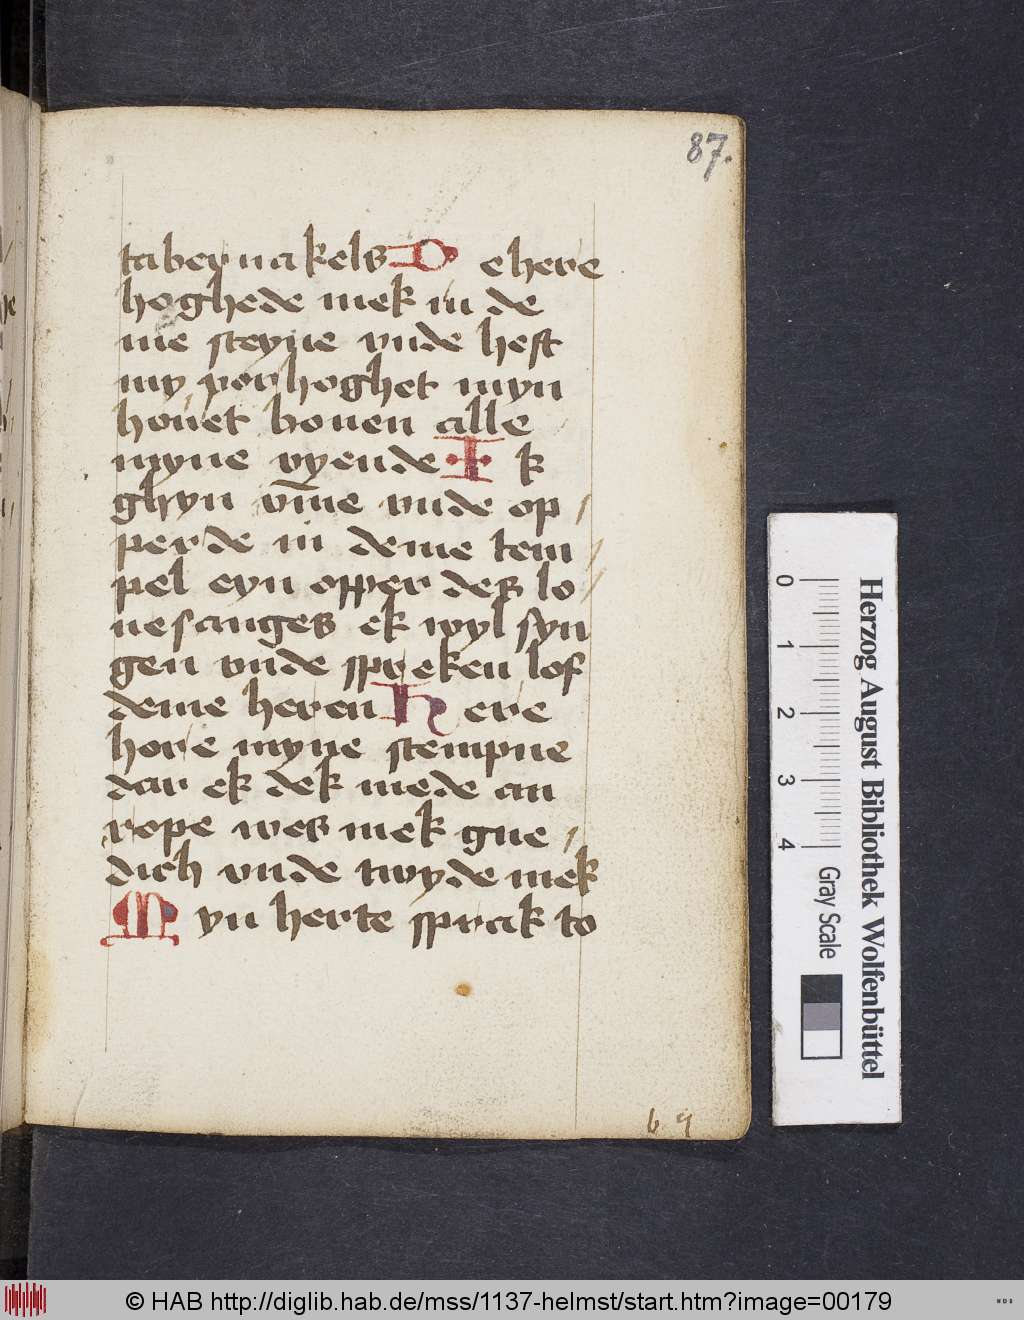 87.
tabernakels De here
hoghede mek in de
me steyne vnde hest
my vorhoghet myn
houet bouen alle
myne vyende Ik
ghyn vm̄e vnde op
perde in deme tem
pel eyn opper des lo
uesanges ek wyl syn
gen vnde spreken lof
deme heren Here
hore myne stempne
dar ek dek mede an
rope wes mek gne
dich vnde twyde mek
Myn herte sprak to
b 9
Herzog August Bibliothek Wolfenbüttel
0 1 2 3 4
Gray Scale
© HAB http://diglib.hab.de/mss/1137-helmst/start.htm?image=00179